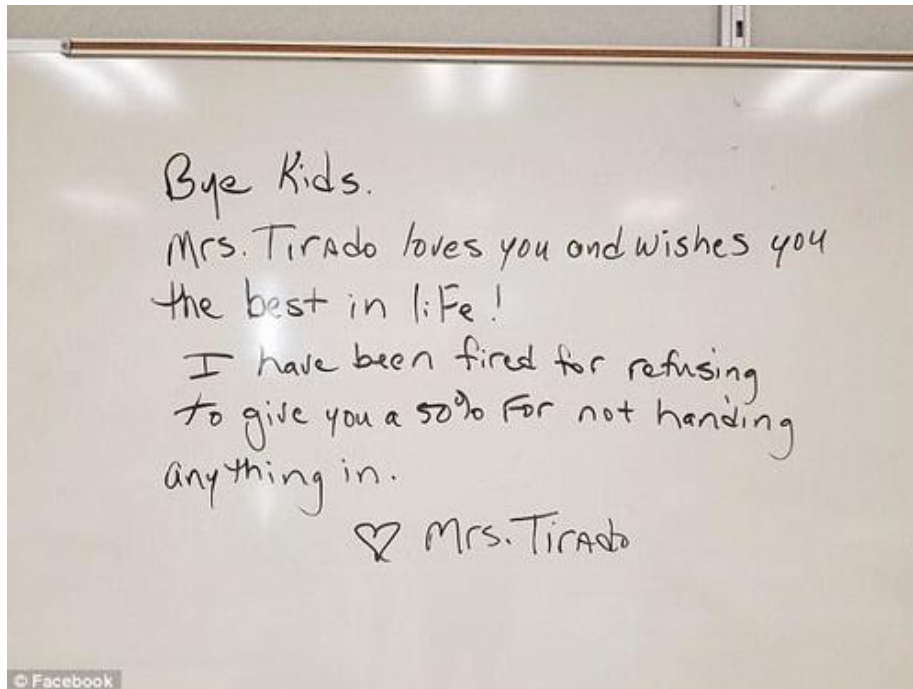 Bye Kids.
Mrs. Tirado loves you and wishes you
the best in life!
I have been fired for refusing
to give you a 50% for not handing
anything in.
♡ Mrs. Tirado
© Facebook